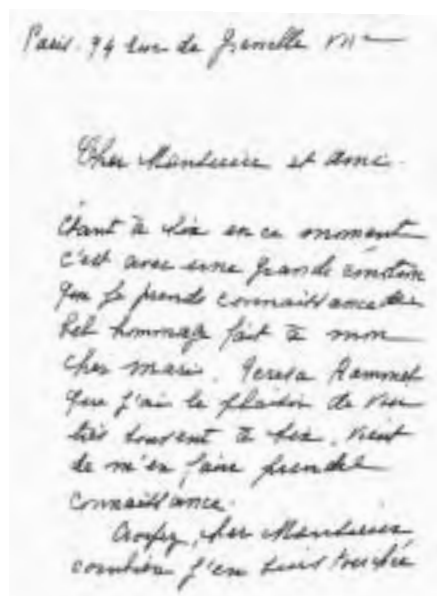 Paris. 94 rue de Grenelle VIIe
Cher Monsieur et ami.
Étant à Aix en ce moment
c'est avec une grande émotion
que je prends connaissance du
bel hommage fait à mon
cher mari.
que j'ai le plaisir de voir
très souvent à Aix, vient
de m'en faire prendre
connaissance.
Croyez, cher Monsieur,
combien j'en suis touchée